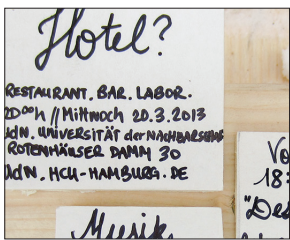 Hotel?
RESTAURANT. BAR. LABOR.
20⁰⁰h // Mittwoch 20.3.2013
UdN. UNIVERSITÄT der NACHBARSCHAF
ROTENHÄUSER DAMM 30
UdN. HCU-HAMBURG.DE
Vo
18:
"Des
Musik